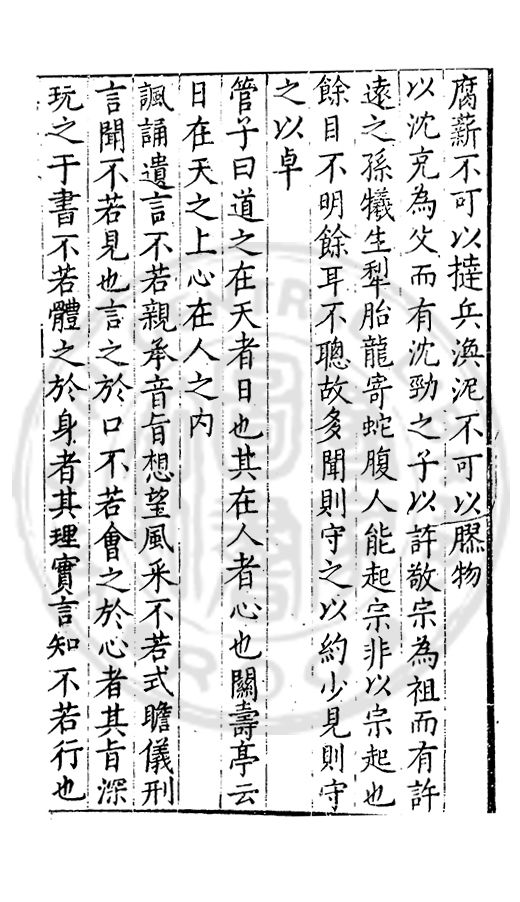 腐薪不可以撻兵渙泥不可以膠物
以沈充為父而有沈勁之子以許敬宗為祖而有許
遠之孫犧生犁胎龍寄蛇腹人能起宗非以宗起也
餘目不明餘耳不聰故多聞則守之以約少見則守
之以卓
管子曰道之在天者日也其在人者心也關壽亭云
日在天之上心在人之內
諷誦遺言不若親承音旨想望風采不若式瞻儀刑
言聞不若見也言之於口不若會之於心者其旨深
玩之于書不若體之於身者其理實言知不若行也